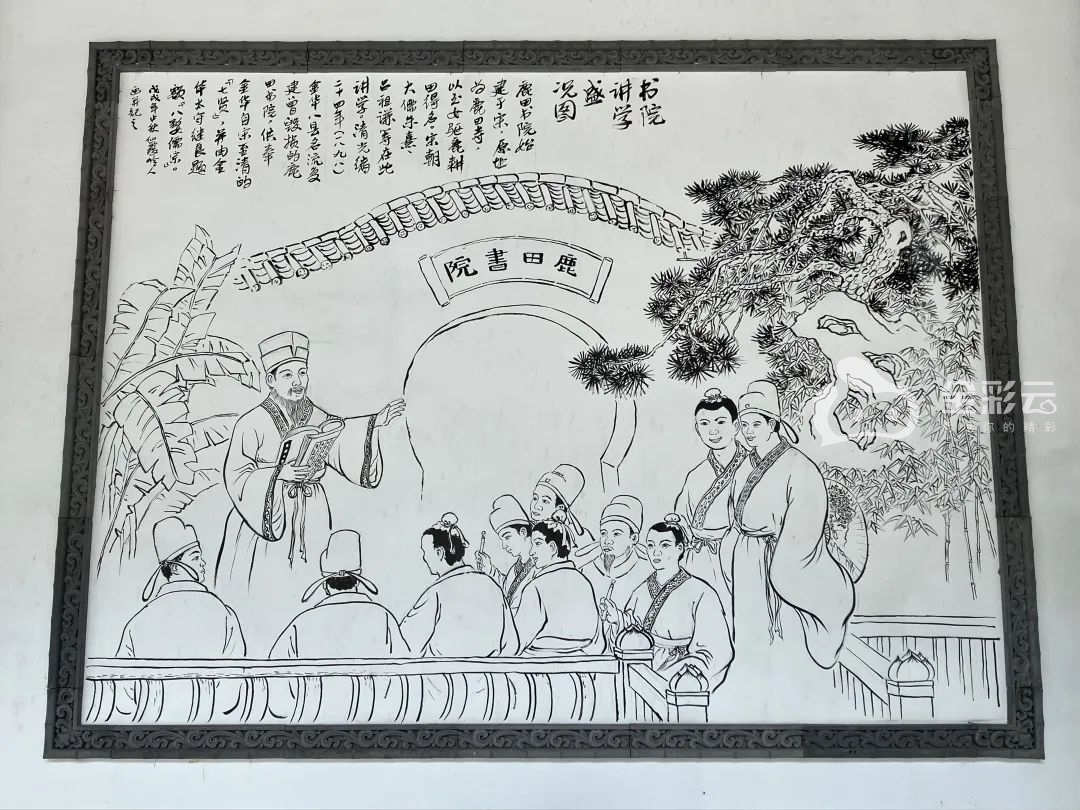 书院
讲学
盛
况图
鹿田书院始
建于宋，原址
为鹿田寺，
以玉女驱鹿耕
田得名。宋朝
大儒朱熹、
吕祖谦等在此
讲学。清光绪
二十四年（一八九八）
金华八县名流复
建曾毁损的鹿
田书院，供奉
金华自宋至清的
“七贤”，并由金
华太守继良题
额“八婺儒宗”。
戊戌年秋
画并记之
鹿田書院
金彩云
你的精彩